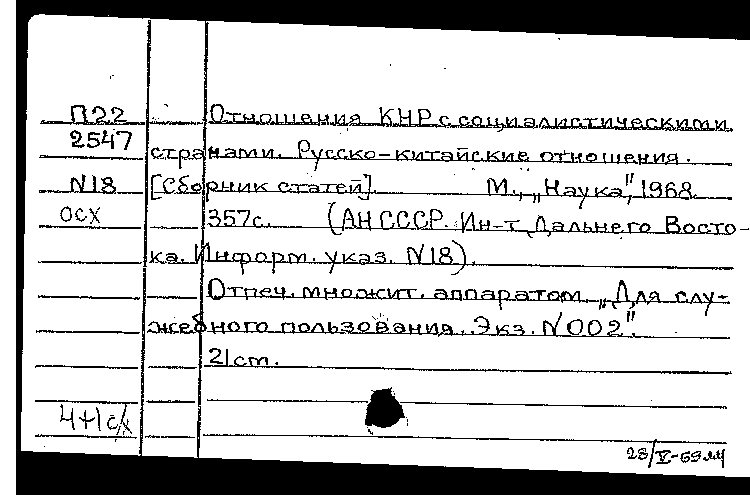 П22 Отношения КНР с социалистическими
2547 странами. Русско-китайские отношения.
N18 [Сборник статей]. М., „Наука", 1968
осх 357с. (АН СССР. Ин-т Дальнего Восто-
ка. Информ. указ. N18).
Отпеч. множит. аппаратом „Для слу-
жебного пользования. Экз. N002".
21см.
4+1с/х